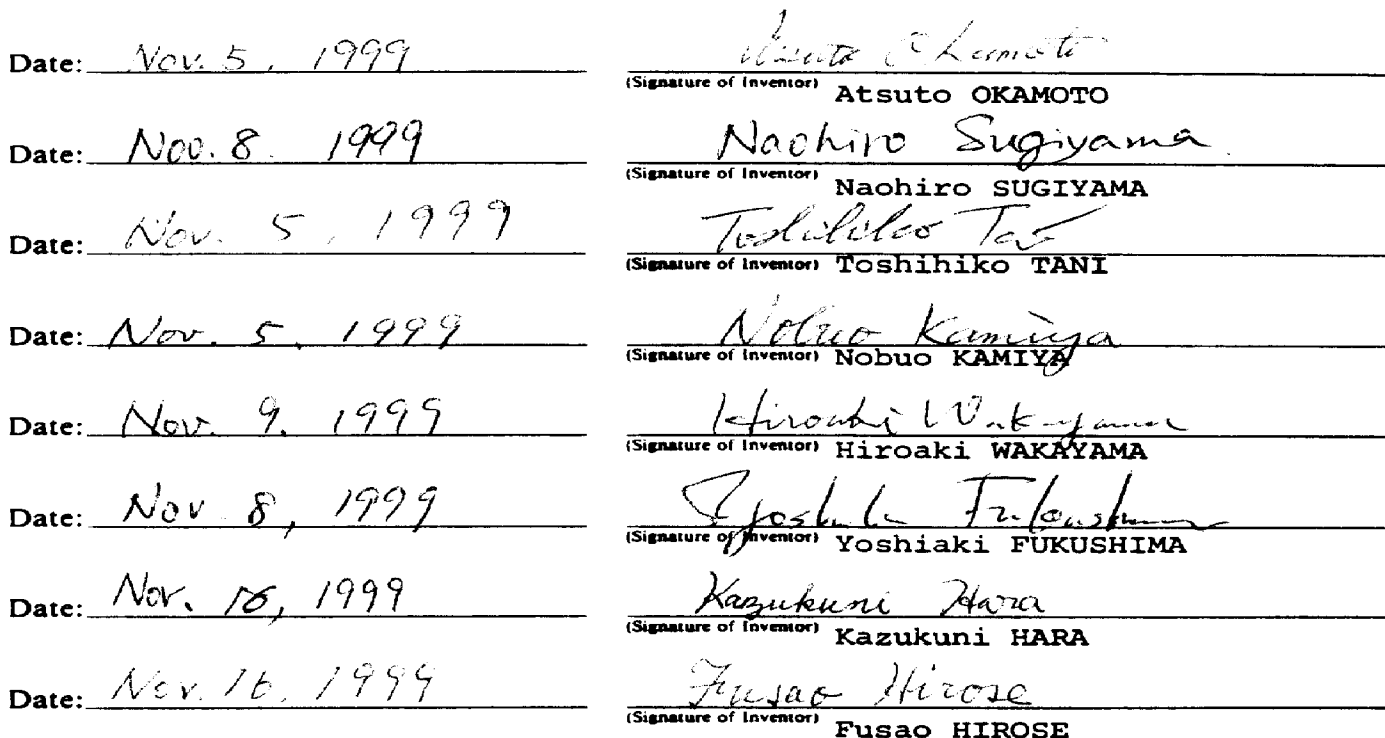 Date: Nov. 5, 1999 Atsuto Okamoto
(Signature of Inventor) Atsuto OKAMOTO
Date: Nov. 8. 1999 Naohiro Sugiyama
(Signature of Inventor) Naohiro SUGIYAMA
Date: Nov. 5, 1999 Toshihiko Tani
(Signature of Inventor) Toshihiko TANI
Date: Nov. 5, 1999 Nobuo Kamiya
(Signature of Inventor) Nobuo KAMIYA
Date: Nov. 9, 1999 Hiroaki Wakayama
(Signature of Inventor) Hiroaki WAKAYAMA
Date: Nov 8, 1999 Yoshiaki Fukushima
(Signature of Inventor) Yoshiaki FUKUSHIMA
Date: Nov. 16, 1999 Kazukuni Hara
(Signature of Inventor) Kazukuni HARA
Date: Nov. 16, 1999 Fusao Hirose
(Signature of Inventor) Fusao HIROSE